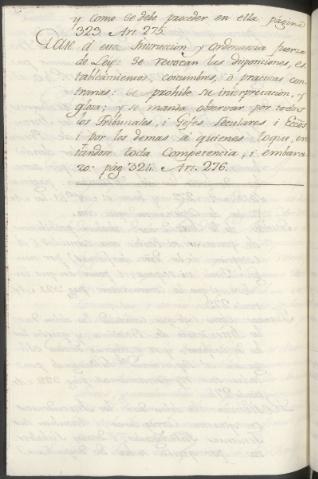 y como se debe proceder en ella página
323 Art. 275.
Dase á esta Instruccion y Ordenanza fuerza
de Ley: se revocan las disposiciones, es
tablecimientos, costumbres, ó practicas con
trarias: se prohibe su interpretacion, y
glosa; y se manda observar por todos
los Tribunales, i Gefes Seculares i
i por los demas á quienes toque, en
toda Competencia, i embara
zo. pag 324. Art. 276.